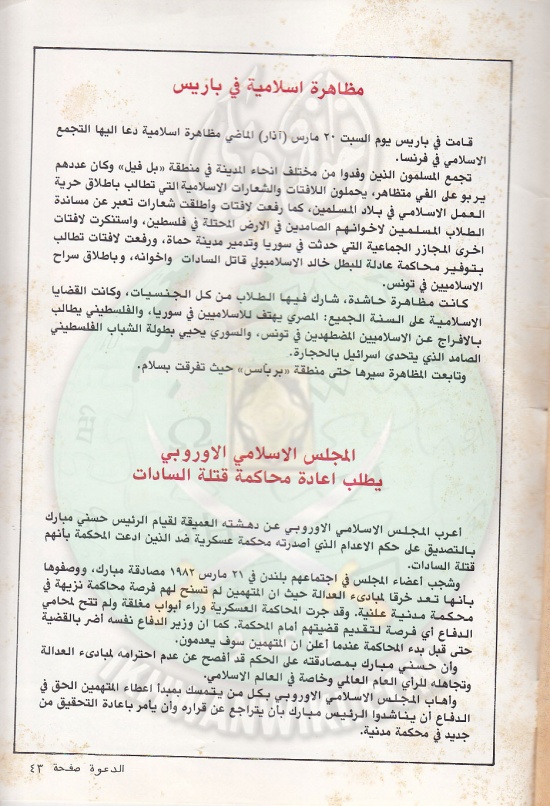 مظاهرة اسلامية في باريس
قامت في باريس يوم السبت ٢٠ مارس (آذار) الماضي مظاهرة اسلامية دعا اليها التجمع
الاسلامي في فرنسا.
تجمع المسلمون الذين وفدوا من مختلف انحاء المدينة في منطقة «بل فيل» وكان عددهم
يربو على الفي متظاهر، يحملون اللافتات والشعارات الاسلامية التي تطالب باطلاق حرية
العمل الاسلامي في بلاد المسلمين، كما رفعت لافتات وأطلقت شعارات تعبر عن مساندة
الطلاب المسلمين لاخوانهم الصامدين في الارض المحتلة في فلسطين، واستنكرت لافتات
اخرى المجازر الجماعية التي حدثت في سوريا وتدمير مدينة حماة، ورفعت لافتات تطالب
بتوفير محاكمة عادلة للبطل خالد الاسلامبولي قاتل السادات واخوانه، وباطلاق سراح
الاسلاميين في تونس.
كانت مظاهرة حاشدة، شارك فيها الطلاب من كل الجنسيات، وكانت القضايا
الاسلامية على السنة الجميع: المصري يهتف للاسلاميين في سوريا، والفلسطيني يطالب
بالافراج عن الاسلاميين المضطهدين في تونس، والسوري يحيي بطولة الشباب الفلسطيني
الصامد الذي يتحدى اسرائيل بالحجارة.
وتابعت المظاهرة سيرها حتى منطقة «برباس» حيث تفرقت بسلام.
المجلس الاسلامي الاوروبي
يطلب اعادة محاكمة قتلة السادات
أعرب المجلس الاسلامي الاوروبي عن دهشته العميقة لقيام الرئيس حسني مبارك
بالتصديق على حكم الاعدام الذي اصدرته محكمة عسكرية ضد الذين ادعت المحكمة بأنهم
قتلة السادات.
وشجب أعضاء المجلس في اجتماعهم بلندن في ٢١ مارس ١٩٨٢ مصادقة مبارك، ووصفوها
بأنها تعد خرقا لمبادىء العدالة حيث ان المتهمين لم تسنح لهم فرصة محاكمة نزيهة في
محكمة مدنية علنية. وقد جرت المحاكمة العسكرية وراء أبواب مغلقة ولم تتح لمحامي
الدفاع أي فرصة لتقديم قضيتهم أمام المحكمة. كما ان وزير الدفاع نفسه أضر بالقضية
حتى قبل بدء المحاكمة عندما أعلن ان المتهمين سوف يعدمون.
وأن حسني مبارك بمصادقته على الحكم قد أفصح عن عدم احترامه لمبادىء العدالة
وتجاهله للرأي العام العالمي وخاصة في العالم الاسلامي.
وأهاب المجلس الاسلامي الاوروبي بكل من يتمسك بمبدأ اعطاء المتهمين الحق في
الدفاع أن يناشدوا الرئيس مبارك بأن يتراجع عن قراره وأن يأمر باعادة التحقيق من
جديد في محكمة مدنية.
الدعوة صفحة ٤٣